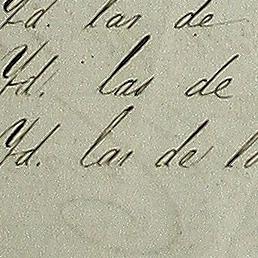 Yd. las de
Yd. las de
Yd. las de lo